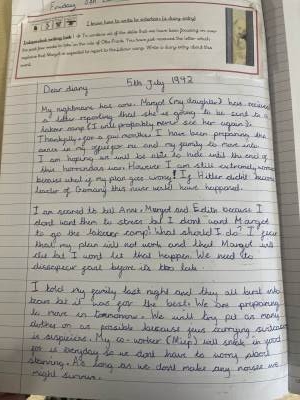 Friday
I know how to write to entertain (a diary entry)
Independent writing task 1
Dear diary 5th July 1942
My nightmare has come. Margot (my daughter) has recieved
a letter reporting that she is going to be sent to a
labour camp (I will probably never see her again).
Thankfully, for a few months I have been preparing the
annex in my office for me and my family to move into.
I am hoping we will be able to hide until the end of
this horrendous war. However I am still extremely worried
because what if my plan goes wrong! If Hitler didn't become
leader of Germany this never would have happened.
I am scared to tell Anne, Margot and Edith because I
dont want them to stress but I dont want Margot
to go the labour camp! What should I do? I fear
that my plan will not work and that Margot will
die but I wont let that happen. We need to
dissapear quick before its too late.
I told my family last night and they all burst into
tears but it was for the best. We are preparing
to move in tommorow. We will try put as many
clothes on as possible because jews carrying suitcases
is suspicious. My co-worker (Miep) will sneak in food
for us everyday so we dont have to worry about
starving. As long as we dont make any noises we
might survive.